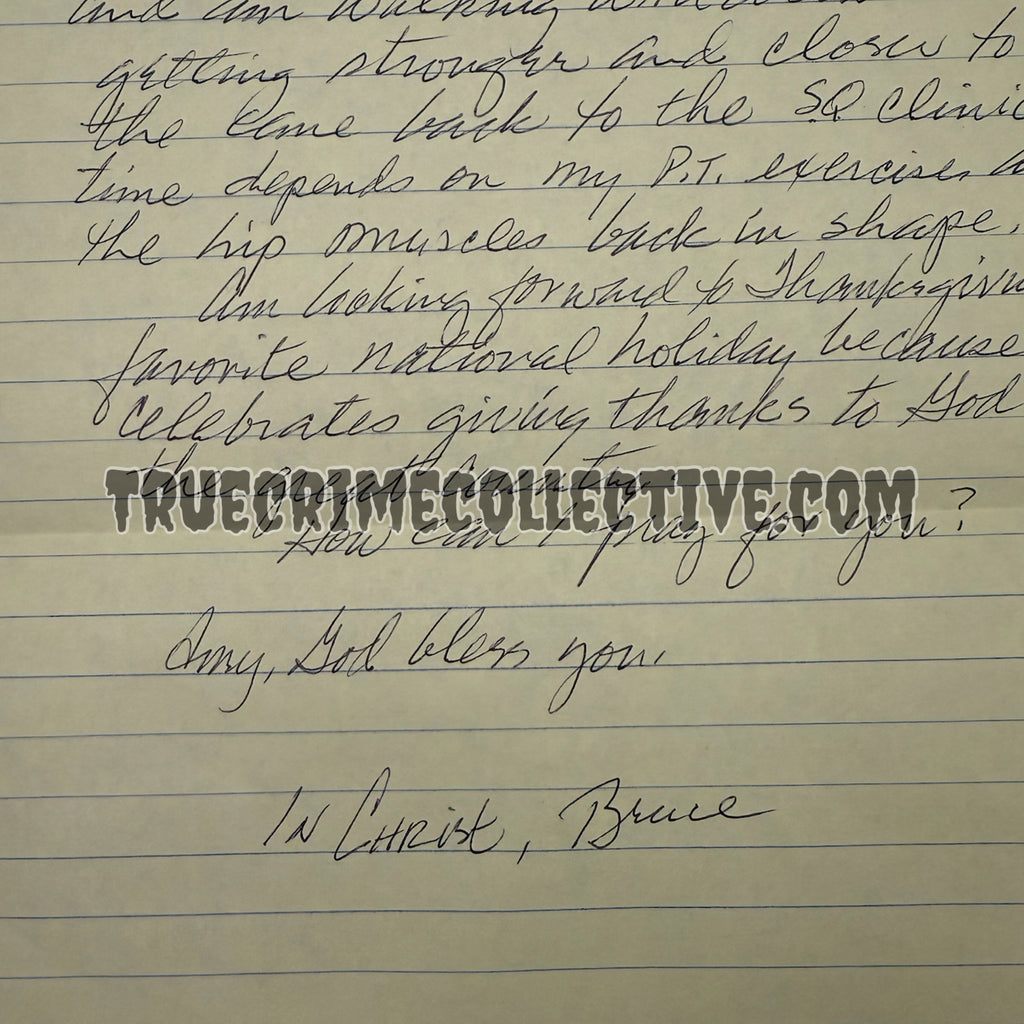 and am walking
getting stronger and closer to
the cane back to the S.Q. clinic
time depends on my P.T. exercises
the hip muscles back in shape.
Am looking forward to Thanksgivin
favorite national holiday because
celebrates giving thanks to God
the great country.
TRUECRIMECOLLECTIVE.COM
How can I pray for you?
Amy, God bless you.
IN CHRIST, Bruce